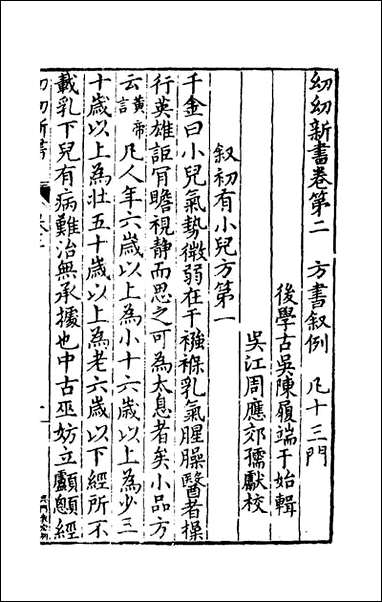 幼幼新書卷第二　方書叙例　凡十三門
後學古吳陳履端于始輯
吳江周應郊孺獻校
叙初有小兒方第一
千金曰小兒氣勢微弱在于襁褓乳氣腥臊醫者操
行英雄詎肎瞻視静而思之可為太息者矣小品方
云黄帝言凡人年六歲以上為小十六歲以上為少三
十歲以上為壯五十歲以上為老六歲以下經所不
載乳下兒有病難治無承據也中古巫妨立顱顖經
幼幼新書